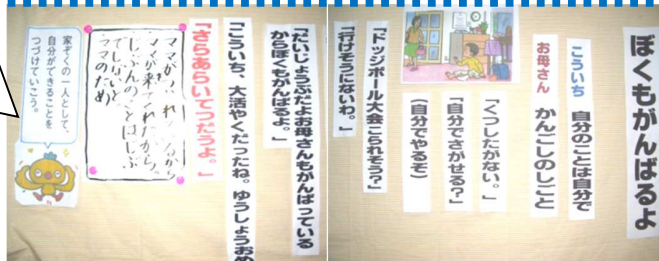 ぼくもがんばるよ
こういち　自分のことは自分で
お母さん　かんごしのしごと
「くつしたがない。」
「自分でさがせる？」
（自分でやるぞ）
「ドッジボール大会こられそう？」
「行けそうにないわ。」
「だいじょうぶだよお母さんもがんばっている
からぼくもがんばるよ。」
「こういち、大活やくだったね。ゆうしょうおめ
「さらあらいてつだうよ。」
ママが
ママが来てくれたから。
じぶんのことはじぶ
でしないと
ママのため
家ぞくの一人として、
自分ができることを
つづけていこう。